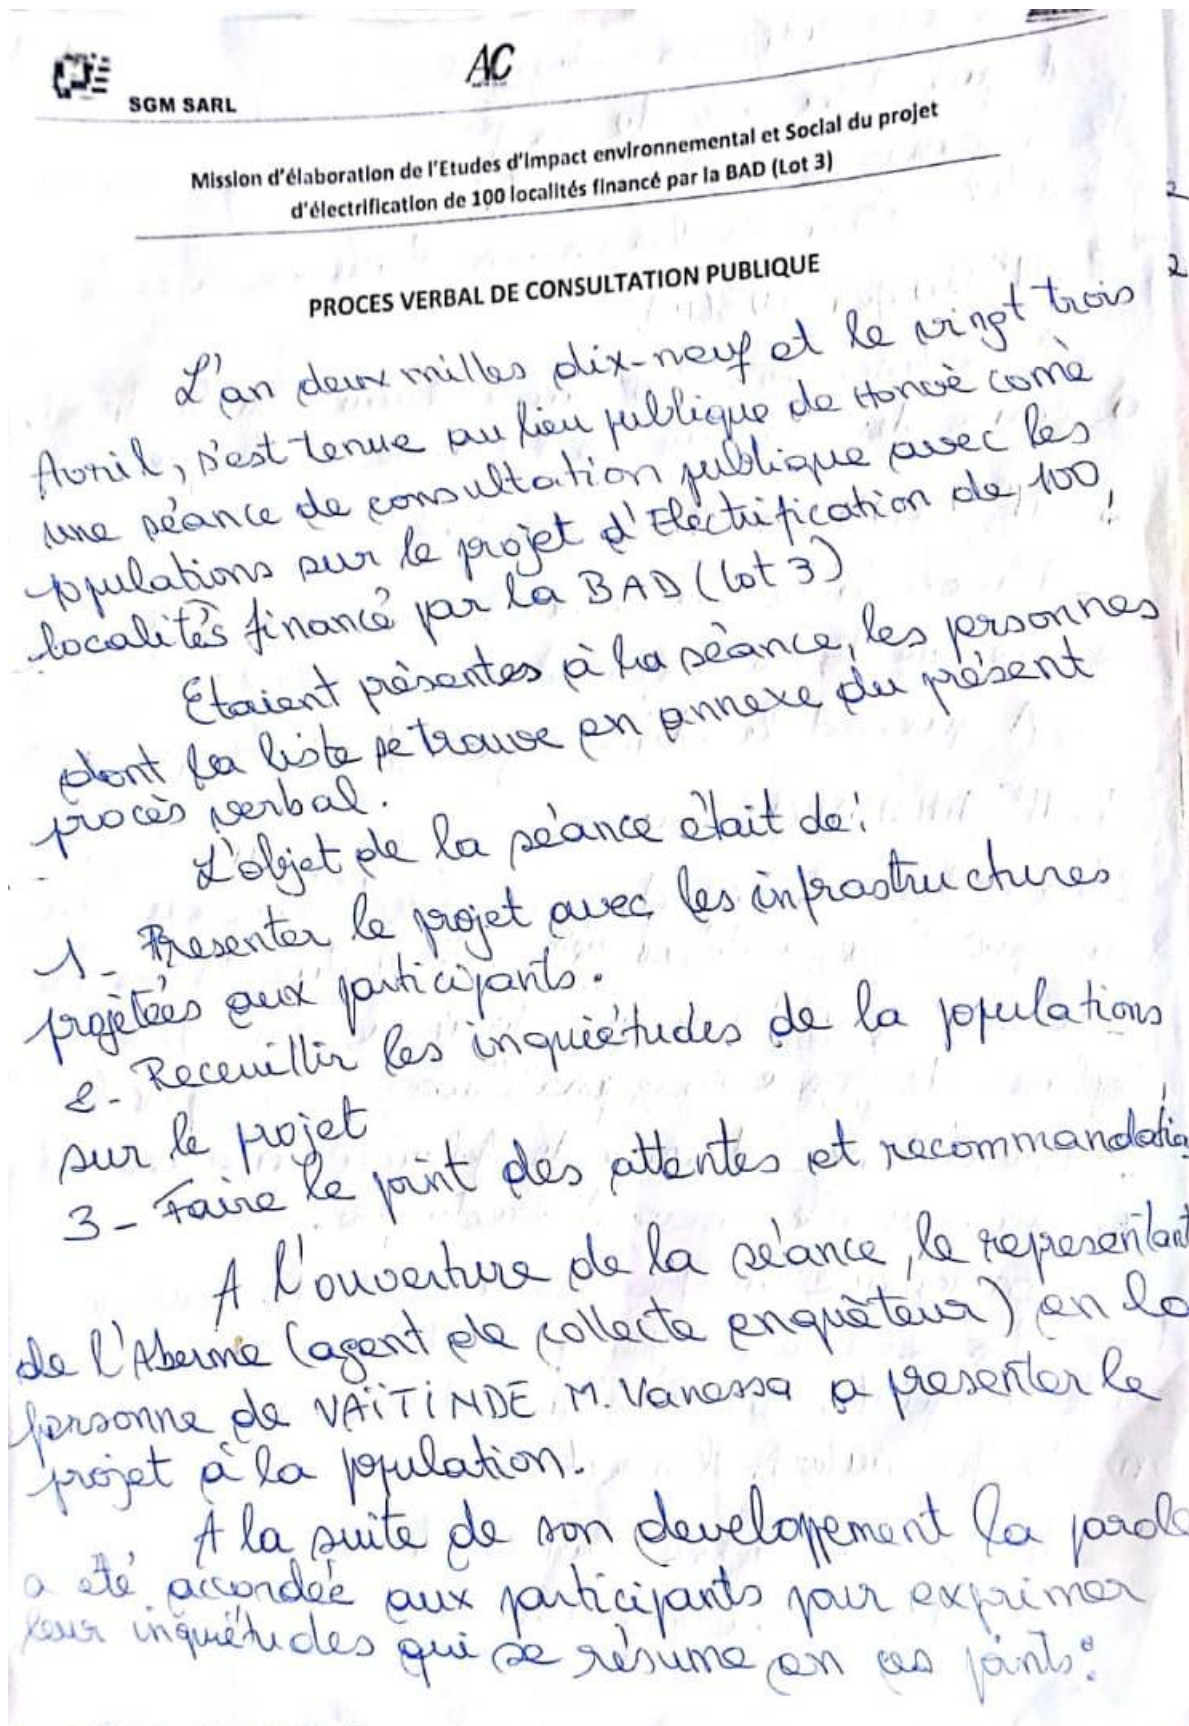 AC
SGM SARL
Mission d'élaboration de l'Etudes d'impact environnemental et Social du projet
d'électrification de 100 localités financé par la BAD (Lot 3)
2
2
PROCES VERBAL DE CONSULTATION PUBLIQUE
L'an deux milles dix-neuf et le vingt trois
Avril, s'est tenue au lieu publique de Honvè comè
une séance de consultation publique avec les
populations sur le projet d'Electrification de 100
localités financé par la BAD (Lot 3)
Etaient présentes à la séance, les personnes
dont la liste se trouve en annexe du présent
procès verbal.
L'objet de la séance était de :
1 - Presenter le projet avec les infrastructures
projetées aux participants.
2 - Receuillir les inquiétudes de la populations
sur le projet
3 - Faire le point des attentes et recommandatio
A l'ouverture de la séance, le representant
de l'Aberme (agent de collecte enquêteur) en la
personne de VAÏTINDE M. Vanessa a presenter le
projet à la population.
A la suite de son developpement la parole
a été accordée aux participants pour exprimer
leur inquiétudes qui se résume en ces points :